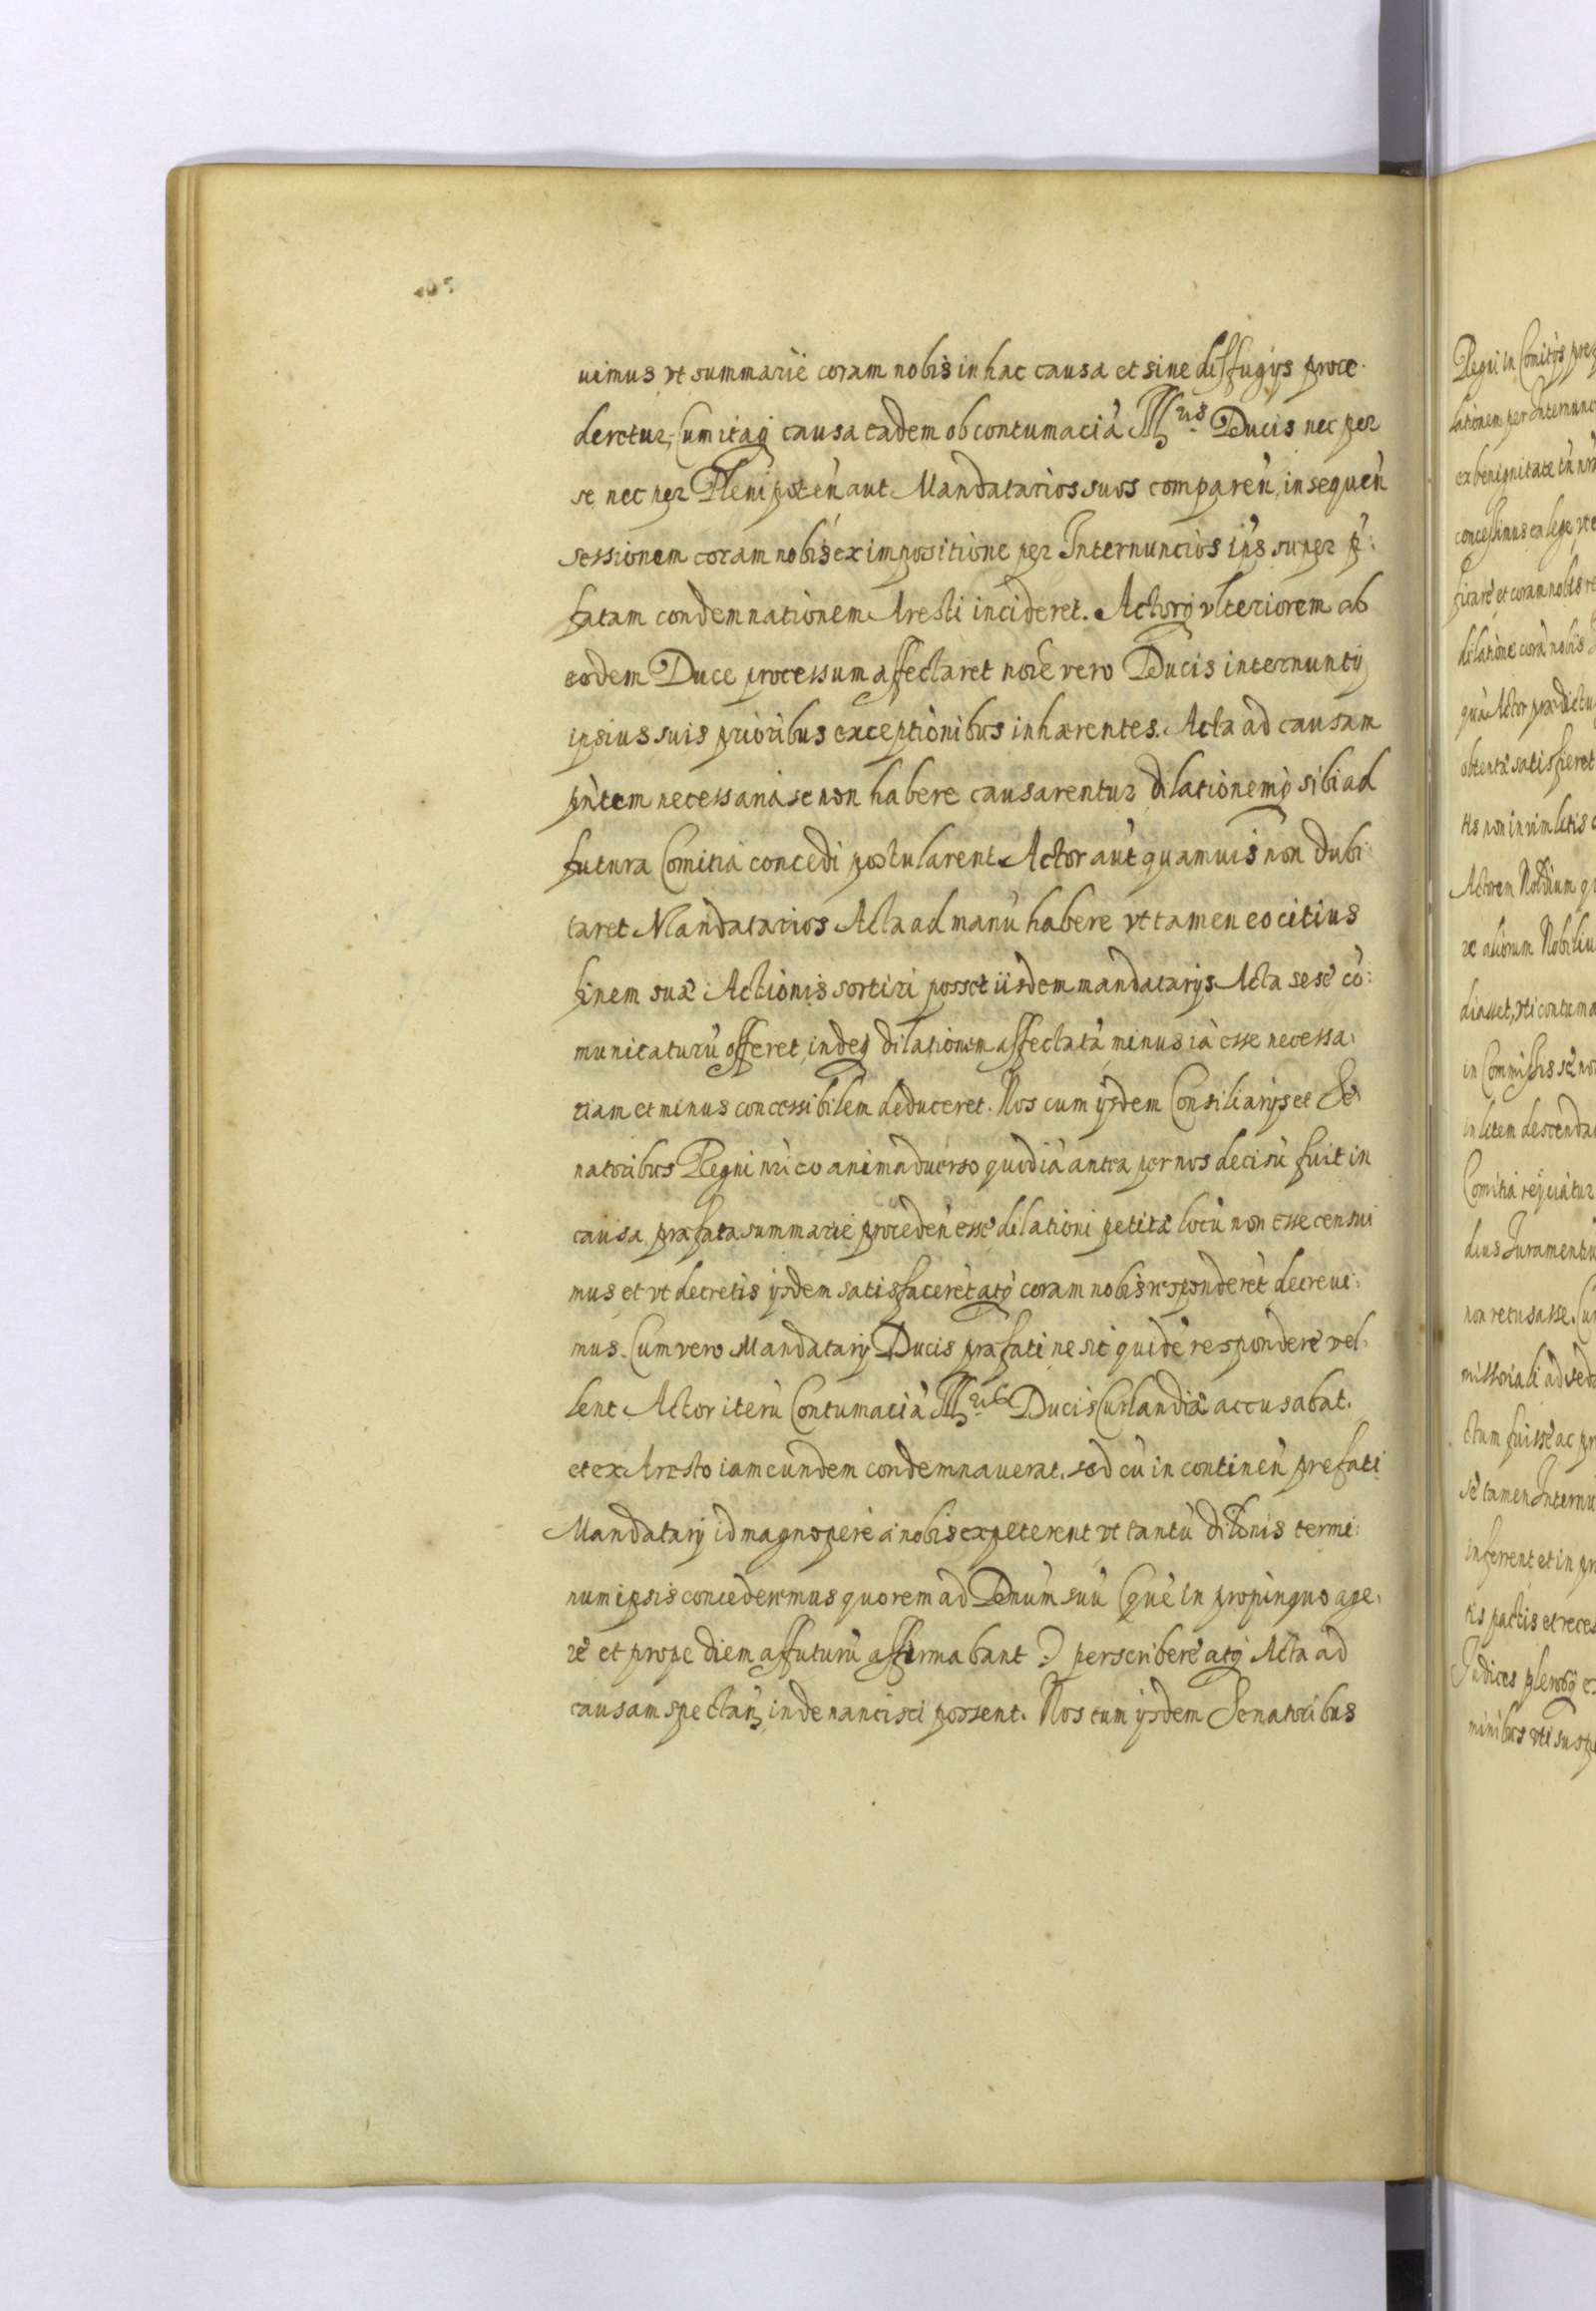 uimus vt summarie coram nobis in hac causa et sine diffugijs proce
deretur, Cum itaq causa eadem ob contumaciã Illris Ducis nec per
se nec per Plenipoteñ aut Mandatarios suos compareñ, in sequeñ
sessionem coram nobis ex impositione per Internuncios ips super p̃:
fatam condemnationem Aresti incideret. Actorq vlteriorem ab
eodem Duce processum affectaret noĩe vero Ducis internuntij
ipsius suis prioribus exceptionibus inhærentes. Acta ad causam
pñtem necessaria se non habere causarentur dilationemq sibi ad
futura Comitia concedi postularent. Actor aũt quamuis non dubi:
taret Mandatarios Acta ad manũ habere vt tamen eo citius
finem suæ Actionis sortiri posset iisdem mandatarijs Acta sese cõ:
municaturũ offeret, indeq dilationem affectatã minus iã esse necessa:
riam et minus concessibilem deduceret. Nos cum ijsdem Consiliarijs et Se
natoribus Regni nři eo animaduerso quod iã antea per nos decisũ fuit in
causa præfata summarie procedeñ esse dilationi petitæ locũ non esse censui
mus et vt decretis ijsdem satisfaceret atq coram nobis responderet decreui:
mus. Cum vero Mandatarij Ducis præfati ne sic quidẽ respondere vel:
lent Actor iterũ Contumaciã Illris Ducis Curlandiæ accusabat.
et ex Aresto iam eundem condemnauerat. sed cũ in contineñ prefati
Mandatarij id magnopere a nobis expeterent vt tantũ dilõnis termi:
num ipsis concederemus quo rem ad Dñum suũ (quẽ in propinquo age:
re et prope diem affuturũ affirmabant) perscribere atq Acta ad
causam spectañ inde nancisci possent. Nos cum ijsdem Senatoribus
Regni in Comitijs
lationem per Internunc
ex benignitate
concessimus ea lege vt
et coram nobis
dilatione corã nobis
quã Actor prædictu
satisfieret
Actorem
aliorum Nobiliu
in Commissis
in litem descenda
Comitia reijciatur
non recusasse. Cu
tamen Internu
inferent et in
tis pactis et reces
Judices
minibus vti